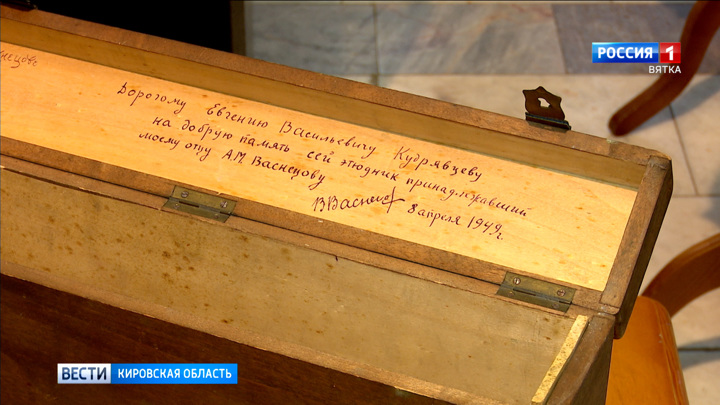 РОССИЯ 1
ВЯТКА
Дорогому Евгению Васильевичу Кудрявцеву
на добрую память сей этюдник принадлежавший
моему отцу А.М. Васнецову
ВВаснецов 8 апреля 1949г.
ВЕСТИ КИРОВСКАЯ ОБЛАСТЬ